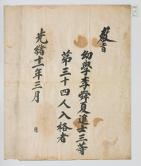 教旨
幼學李舜夏進士三等
第三十四人入格者
光緒十一年三月 日